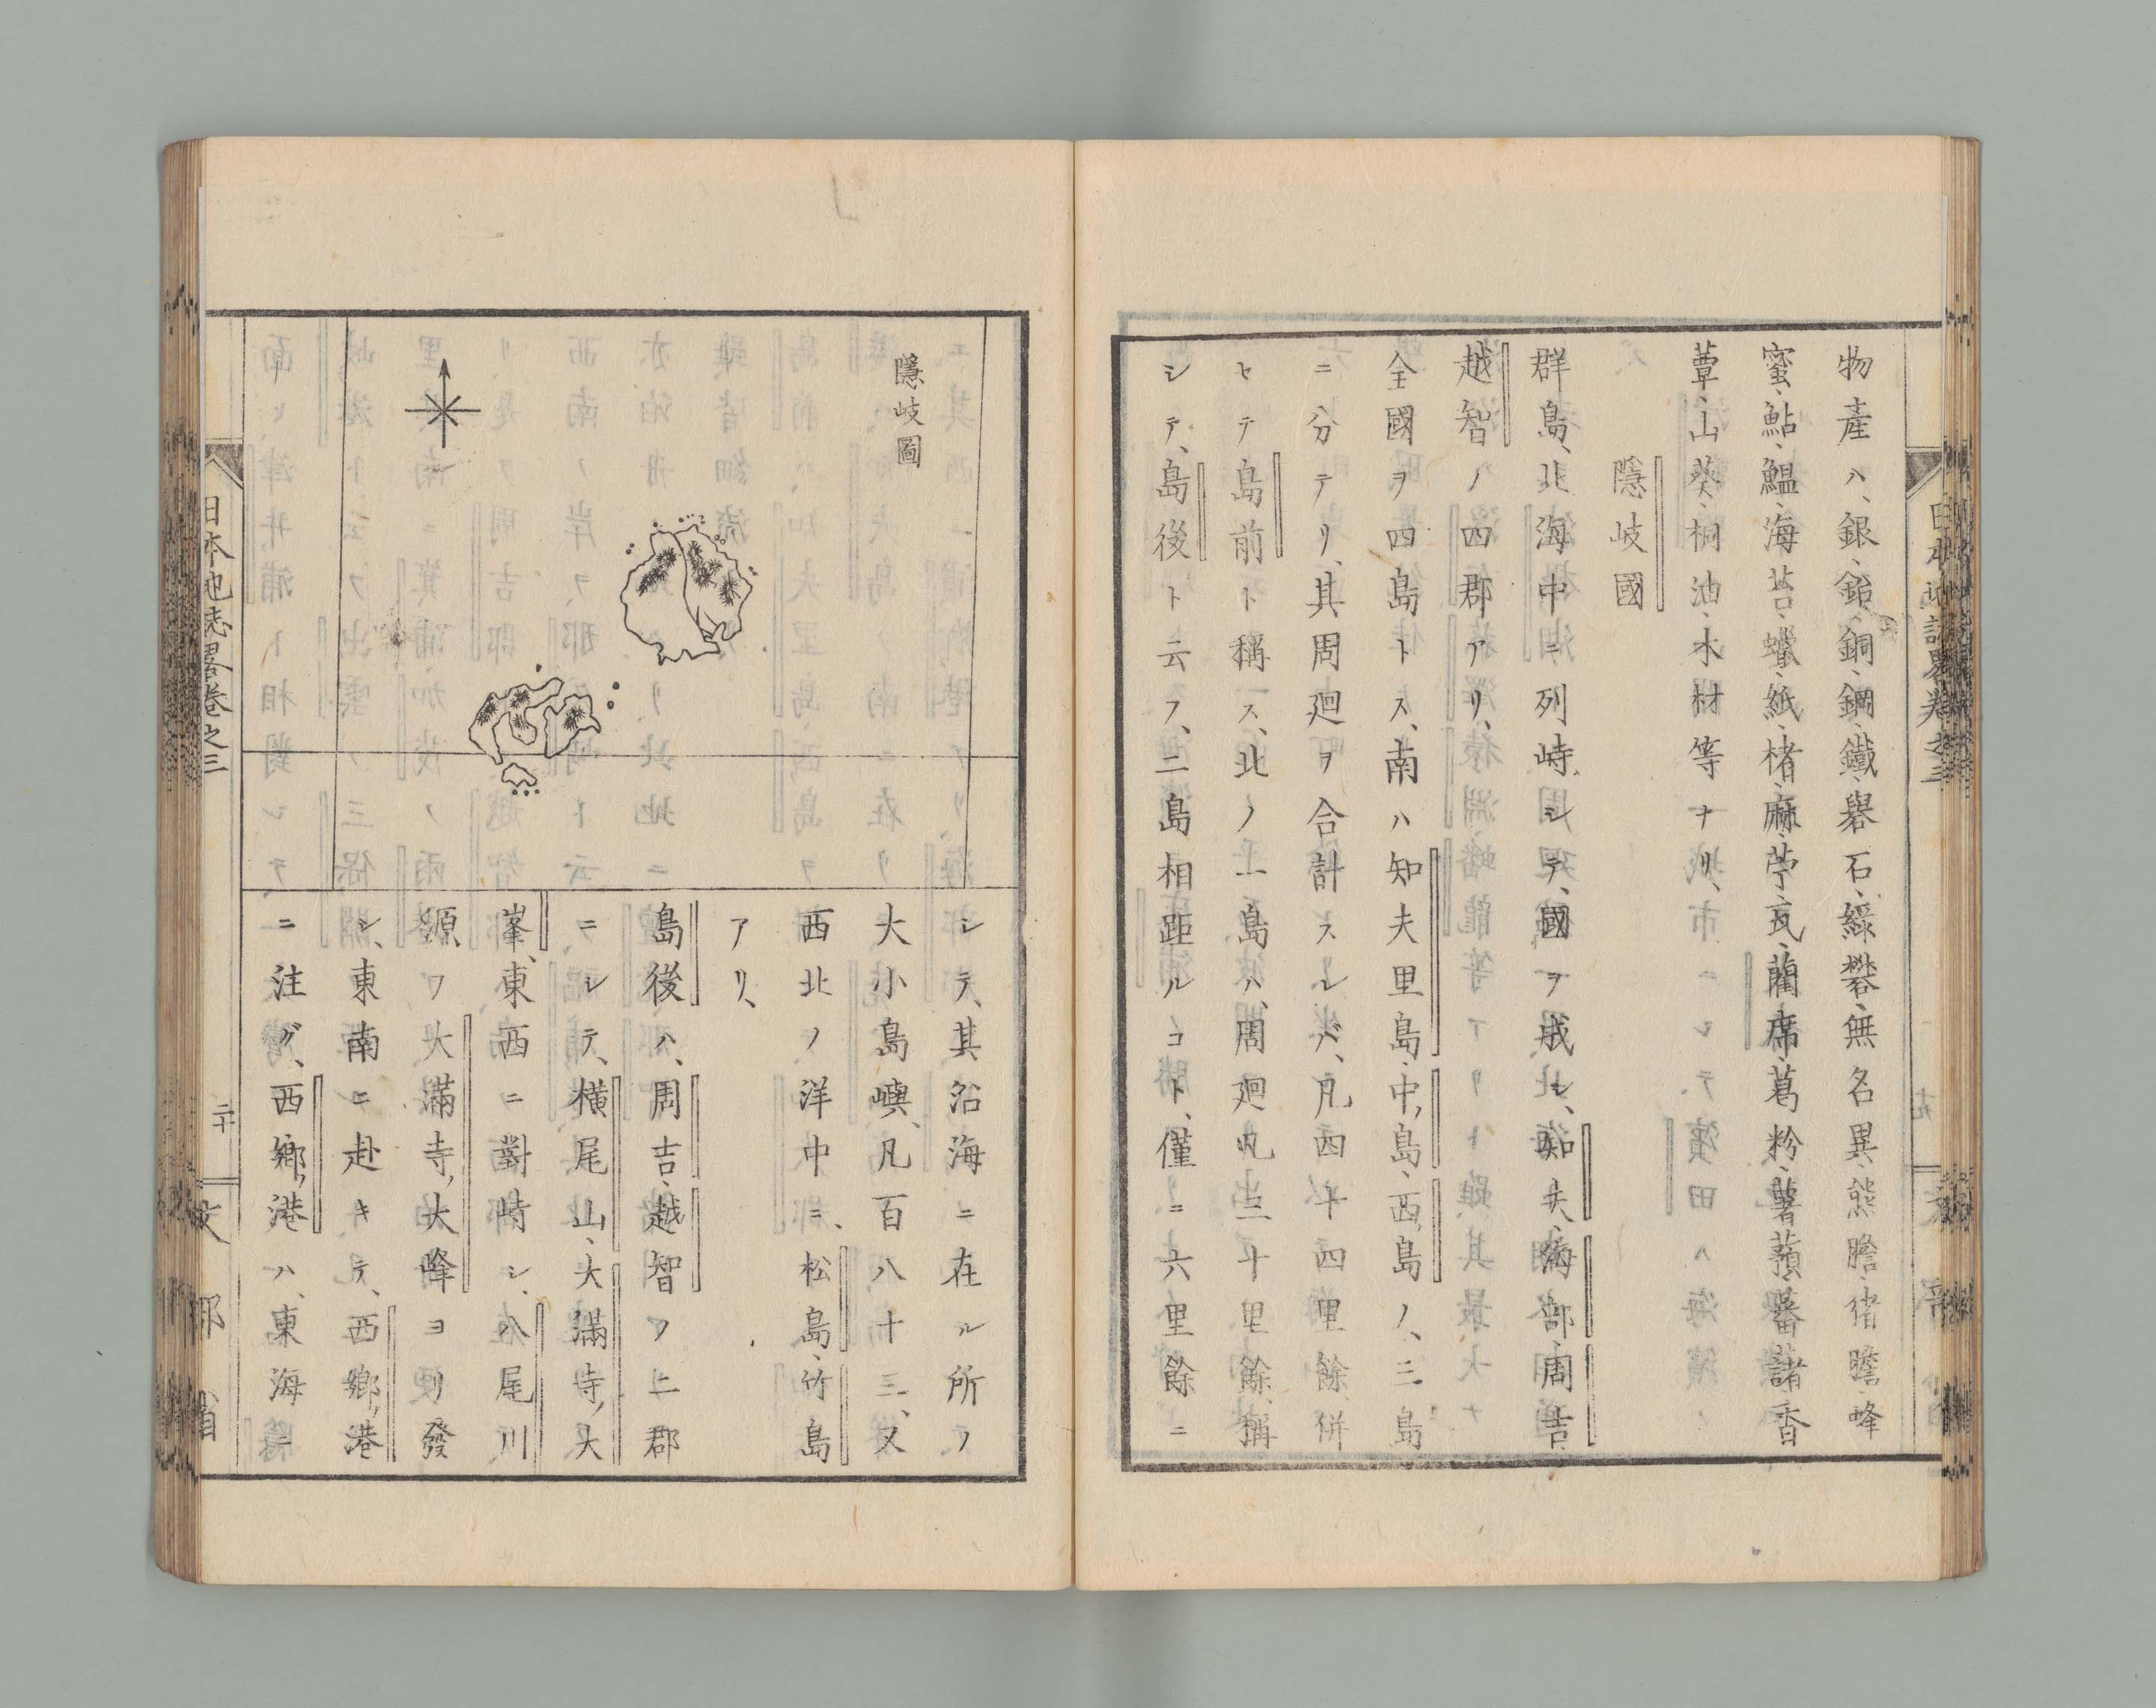 物產ハ、銀、鉛、銅、鋼、鐵、礜石、綠礬、無名異、熊膽、猪膽、蜂
蜜、鮎、鰛、海苔、蠟、紙、楮、麻、苧、瓦、藺席、葛粉、薯蕷、蕃藷、香
蕈、山葵、桐油、木材等ナリ、
隱岐國
群島、北海中ニ列峙シテ、國ヲ成シ、知夫、海部、周吉
越智ノ四郡アリ、
全國ヲ四島トス、南ハ知夫里島、中,島、西,島ノ、三島
ニ分テリ、其周廻ヲ合計スレバ、凡四十四里餘、併
セテ島前ト稱ス、北ノ一島ハ、周廻凡三十里餘、稱
シテ、島後ト云フ、二島相距ルコト、僅ニ六里餘ニ
日本地誌畧卷之三
隱岐圖
シテ、其沿海ニ在ル所ノ
大小島嶼、凡百八十三、又
西北ノ洋中ニ、松島、竹島
アリ、
島後ハ、周吉、越智ノ二郡
ニシテ、橫尾山、大滿寺,大
峯、東西ニ對峙シ、八尾川
源ヲ大滿寺,大峰ヨリ發
シ、東南ニ赴キテ、西鄕,港
ニ注グ、西鄕,港ハ、東海ニ
日本地誌畧卷之三
二十
文部省